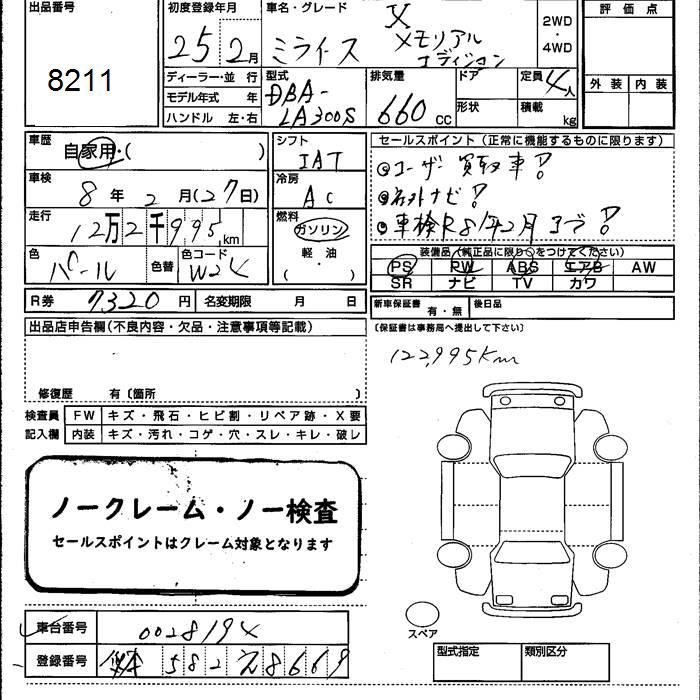 出品番号
8211
初度登録年月
25年2月
車名・グレード
ミライース
X
メモリアル
エディション
2WD
・
4WD
評価点
外装 内装
ディーラー・並行
モデル年式 年
ハンドル 左・右
型式
DBA-
LA300S
排気量
660 cc
ドア
形状
定員 4人
積載 kg
車歴
自家用・( )
車検
8年2月(27日)
走行
12万2千995km
色
パール
色替
色コード
W24
シフト
IAT
冷房
AC
燃料
ガソリン
軽油
( )
セールスポイント(正常に機能するものに限ります)
◎ユーザー買取車!
◎社外ナビ!
◎車検R8年2月まで!
装備品(純正品に限り○をつけてください)
PS PW ABS エアB AW
SR ナビ TV カワ
R券 7320円
名変期限 月 日
新車保証書 有・無
後日品
(保証書は事務局へ提出して下さい)
出品店申告欄(不良内容・欠品・注意事項等記載)
122,995Km
修復歴 有〔箇所 〕
検査員 FW キズ・飛石・ヒビ割・リペア跡・X要
記入欄 内装 キズ・汚れ・コゲ・穴・スレ・キレ・破レ
ノークレーム・ノー検査
セールスポイントはクレーム対象となります
車台番号 0028194
登録番号 582 え8669
スペア
型式指定 類別区分